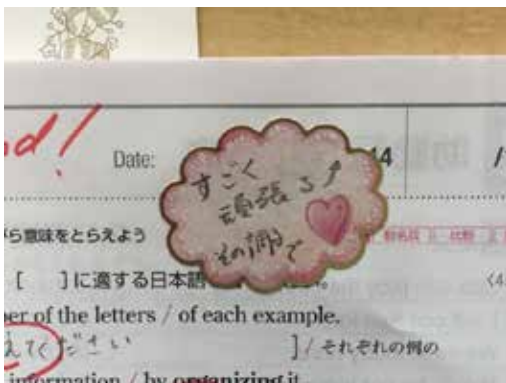 Date:
すごく
頑張る↑
その調で
ら意味をとらえよう
[ ]に適する日本語
er of the letters / of each example.
えてください ] / それぞれの例の
information / by organizing it